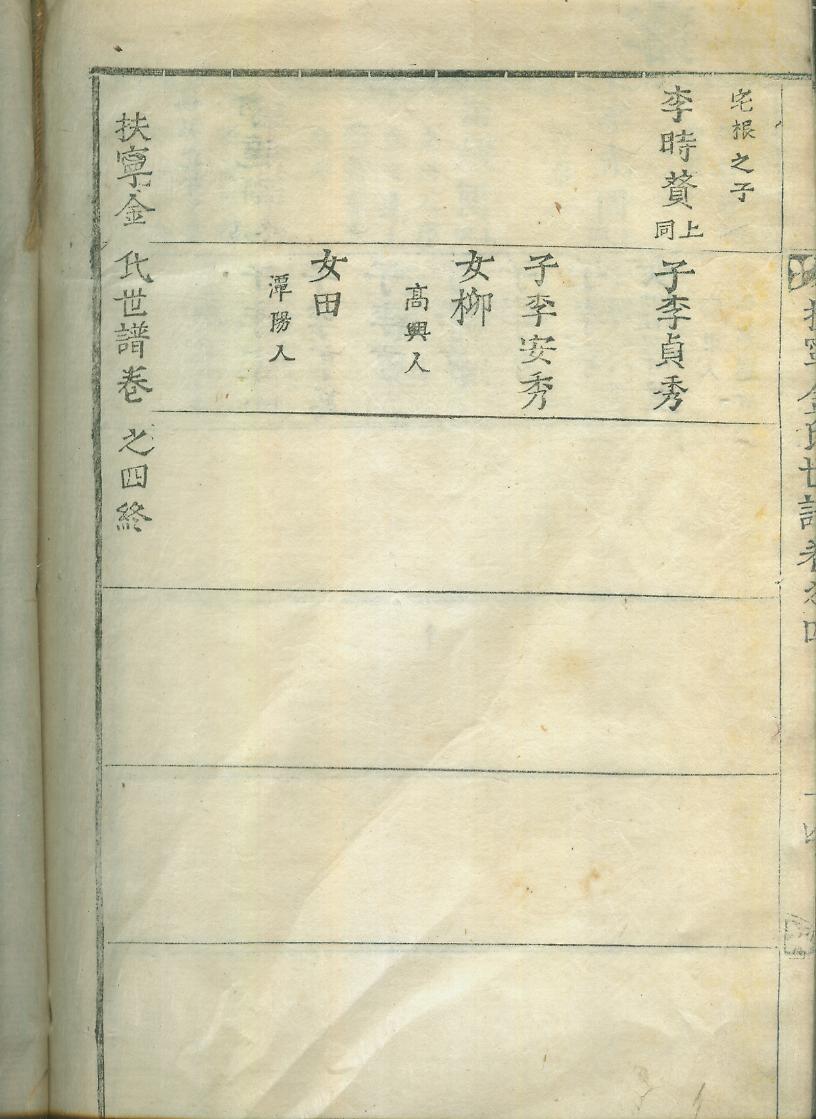 扶寧金氏世譜卷之四
宅根之子
李時贇 上同
子李貞秀
子李安秀
女柳
高興人
女田
潭陽人
扶寧金氏世譜卷之四終